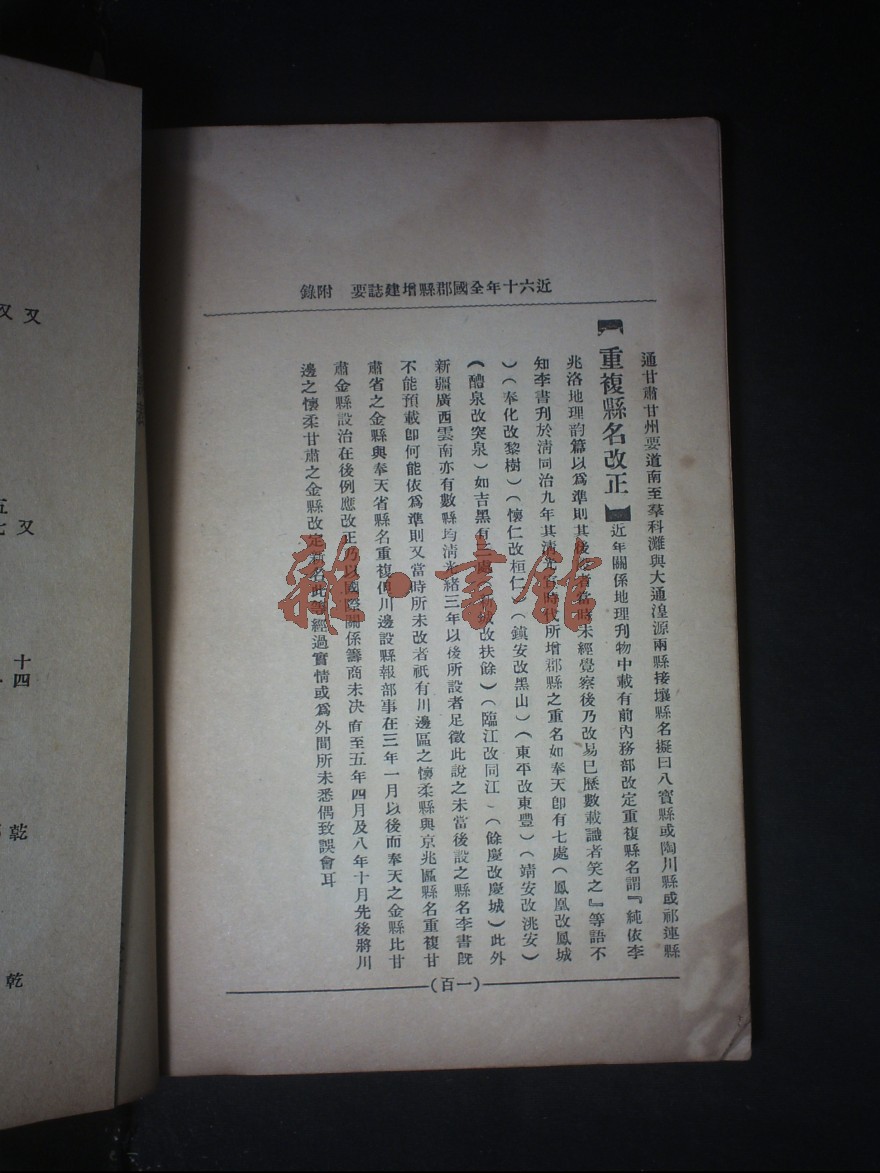 近六十年全國郡縣增建誌要 附錄
通甘肅甘州要道南至羣科灘與大通湟源兩縣接壤縣名擬曰八寶縣或陶川縣或祁連縣
【重複縣名改正】近年關係地理刊物中載有前內務部改定重複縣名謂『純依李
兆洛地理韵篇以爲準則其後設者當時未經覺察後乃改易已歷數載識者笑之』等語不
知李書刊於淸同治九年其淸光 時代所增郡縣之重名如奉天卽有七處(鳳凰改鳳城
)(奉化改黎樹)(懷仁改桓仁)(鎮安改黑山)(東平改東豐)(靖安改洮安)
(醴泉改突泉)如吉黑有三處 改扶餘)(臨江改同江)(餘慶改慶城)此外
新疆廣西雲南亦有數縣均淸光緒三年以後所設者足徵此說之未當後設之縣名李書旣
不能預載卽何能依爲準則又當時所未改者祇有川邊區之懷柔縣與京兆區縣名重複甘
肅省之金縣與奉天省縣名重複 川邊設縣報部事在三年一月以後而奉天之金縣比甘
肅金縣設治在後例應改正乃以國際關係籌商未决直至五年四月及八年十月先後將川
邊之懷柔甘肅之金縣改定 名此 經過實情或爲外間所未悉偶致誤會耳
(一百)
雜·書館
又
又
五
七
又
十
四
乾
乾